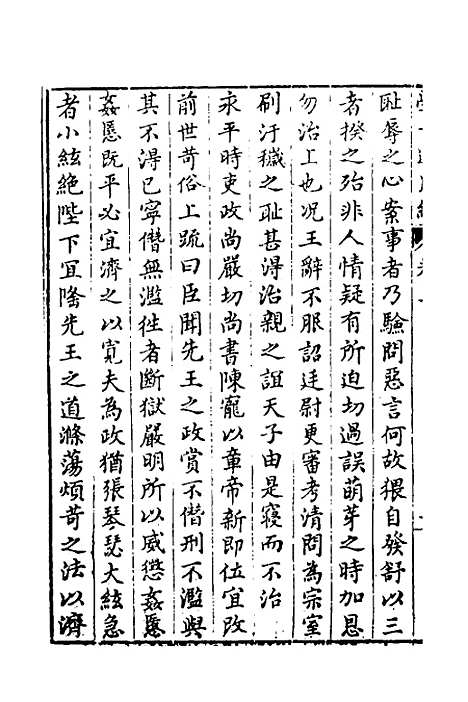 耻辱之心案事者乃驗問惡言何故猥自發舒以三
者揆之殆非人情疑有所迫切過誤萌芽之時加恩
勿治上也况王辭不服詔廷尉更審考清問為宗室
刷汙穢之耻甚得治親之誼天子由是寢而不治
永平時吏政尚嚴切尚書陳寵以章帝新即位宜改
前世苛俗上疏曰臣聞先王之政賞不僭刑不濫與
其不得已寧僭無濫徃者斷獄嚴明所以威懲姦慝
姦慝既平必宜濟之以寬夫為政猶張琴瑟大絃急
者小絃絶陛下冝隆先王之道滌蕩煩苛之法以濟